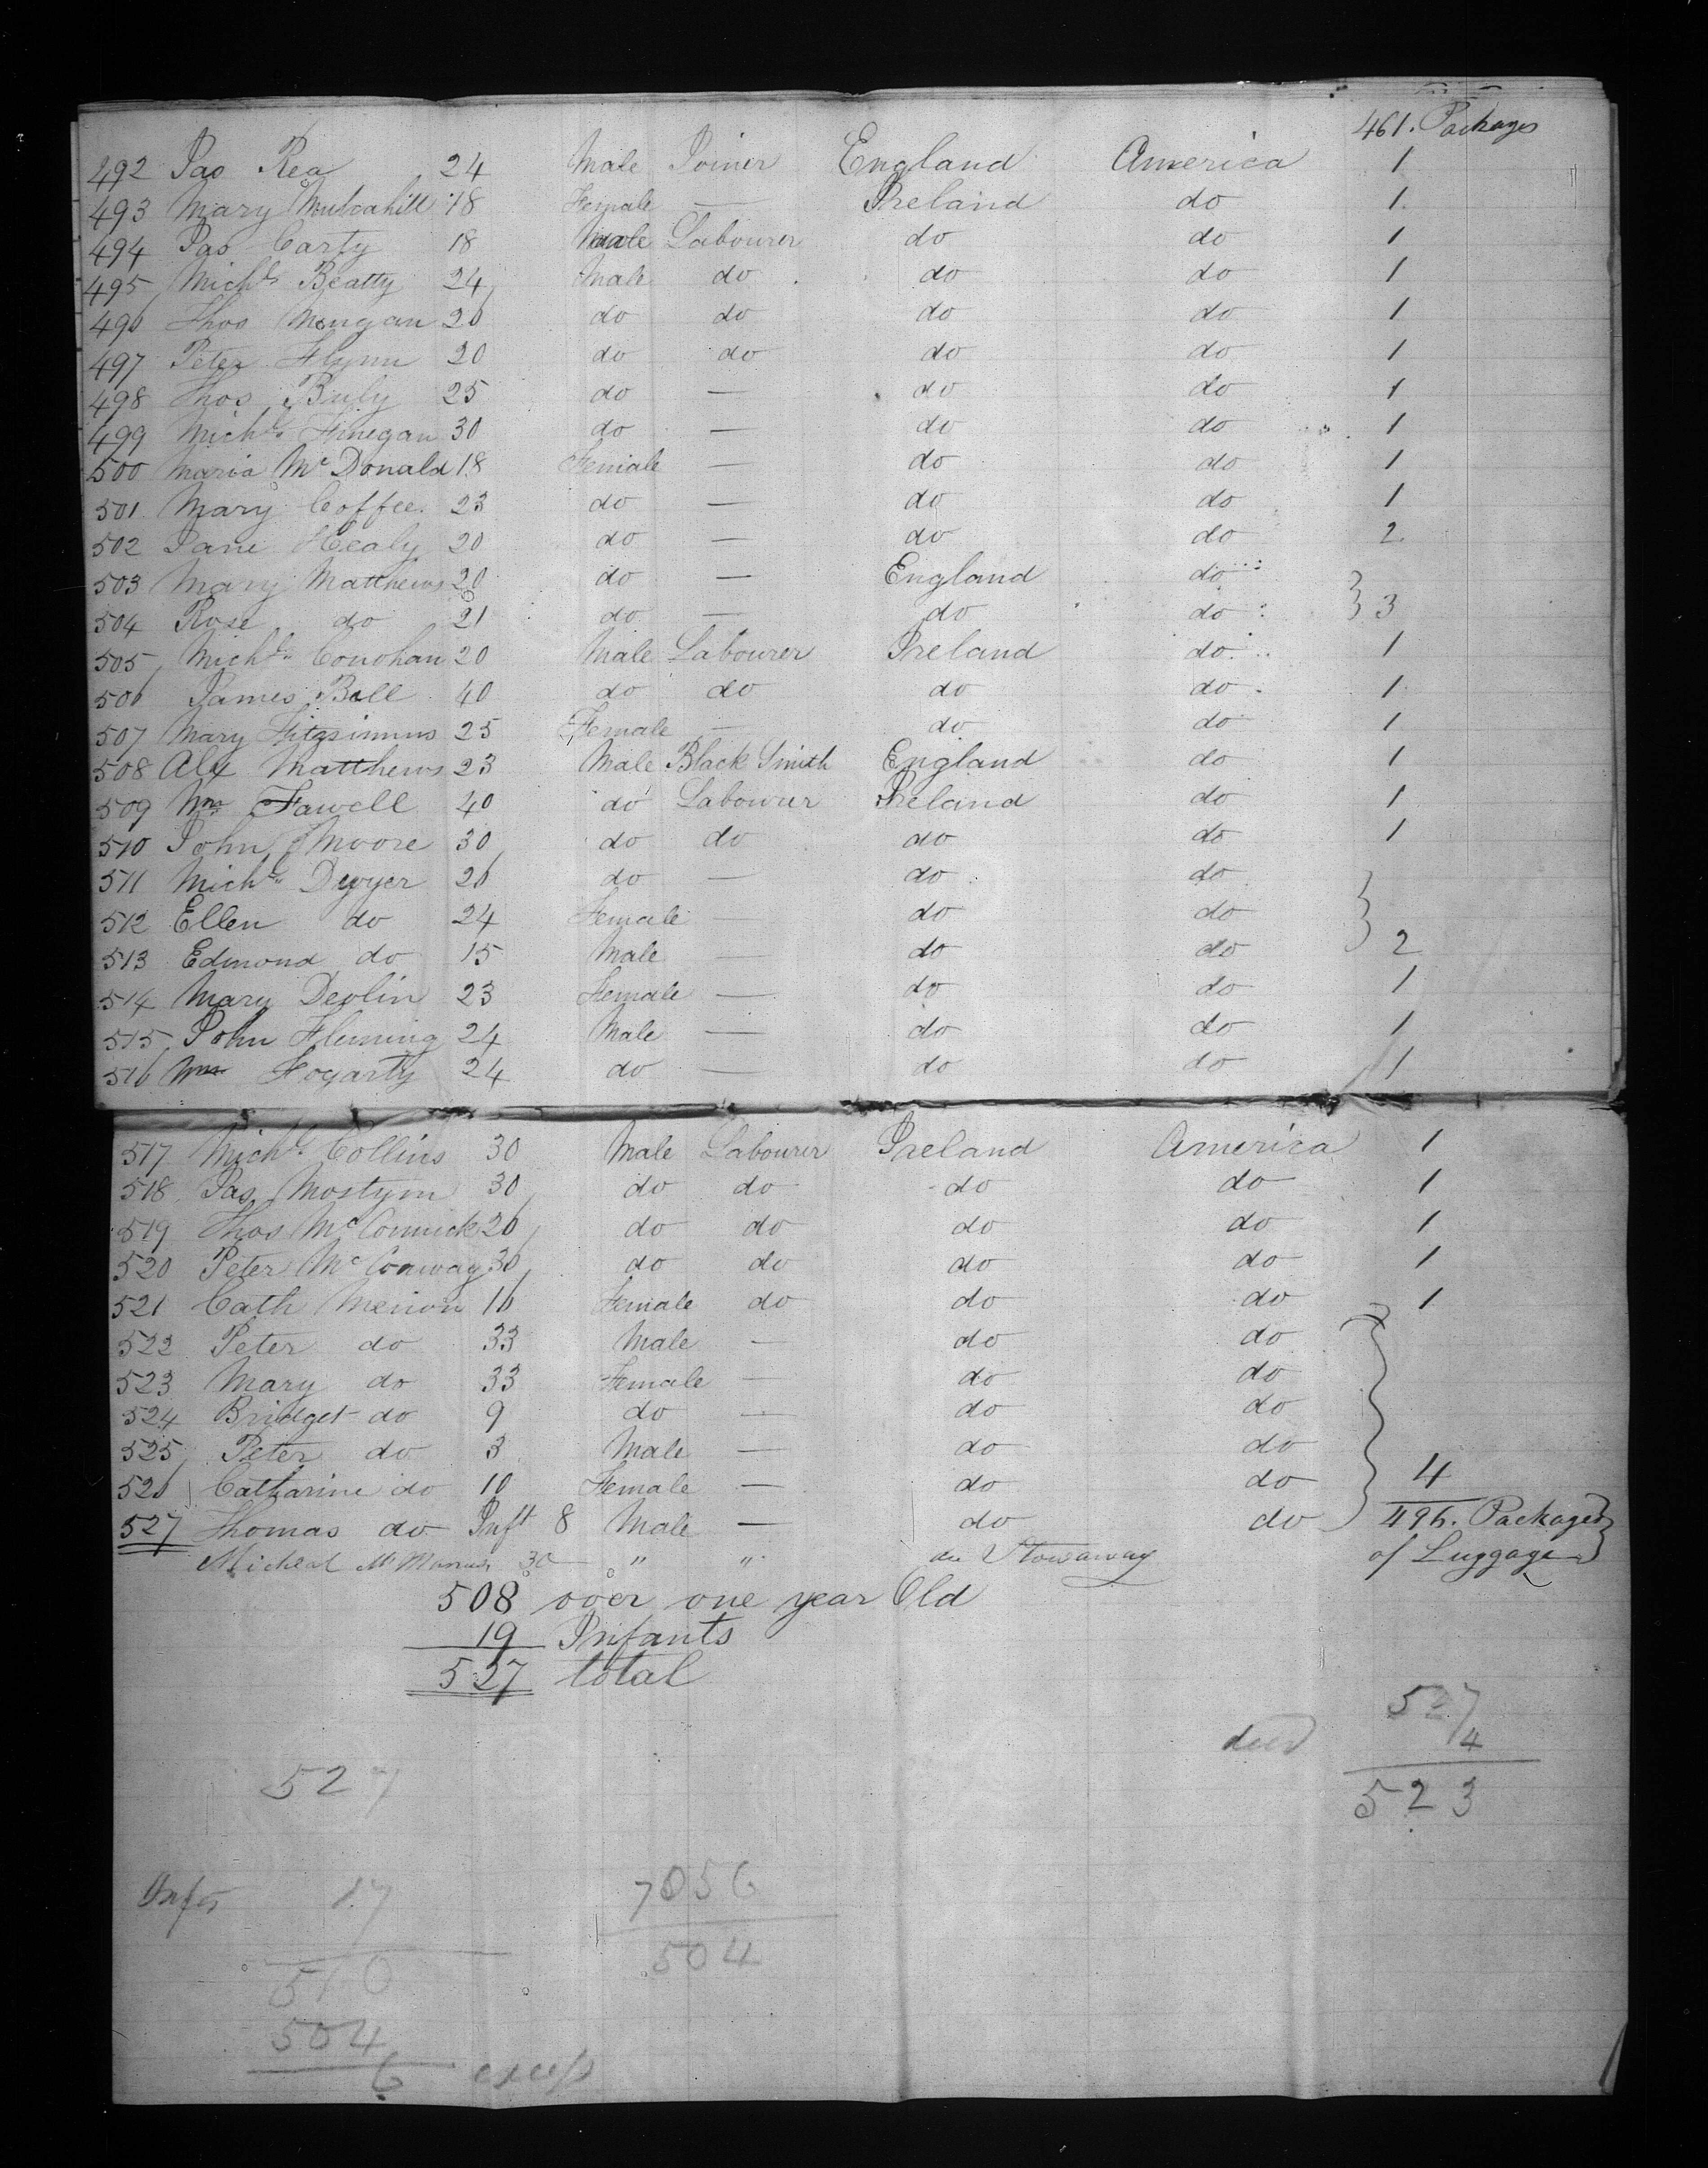 461. Packages
492 Jas Rea 24 Male Joiner England America 1
493 Mary Mulcahill 18 Female — Ireland do 1
494 Jas Carty 18 Male Labourer do do 1
495 Michl Beatty 24 Male do do do 1
496 Thos Mongan 26 do do do do 1
497 Peter Flynn 20 do do do do 1
498 Thos 25 do — do do 1
499 Michl Finegan 30 do — do do 1
500 Maria McDonald 18 Female — do do 1
501 Mary Coffee 23 do — do do 1
502 Jane Healy 20 do — do do 2
503 Mary Matthews 20 do — England do
504 Rose do 21 do — do do } 3
505 Michl Conohan 20 Male Labourer Ireland do 1
506 James Bell 40 do do do do 1
507 Mary Fitzsimmns 25 Female — do do 1
508 Alx Matthews 23 Male Black Smith England do 1
509 Wm Fawell 40 do Labourer Ireland do 1
510 John Moore 30 do do do do 1
511 Michl Dwyer 26 do — do do
512 Ellen do 24 Female — do do
513 Edmond do 15 Male — do do } 2
514 Mary Devlin 23 Female — do do 1
515 John Fleming 24 Male — do do 1
516 Wm Fogarty 24 do — do do 1
517 Michl Collins 30 Male Labourer Ireland America 1
518 Jas Mostynn 30 do do do do 1
519 Thos McCormick 26 do do do do 1
520 Peter McConway 30 do do do do 1
521 Cath Merion 16 Female do do do 1
522 Peter do 33 Male — do do
523 Mary do 33 Female — do do
524 Bridget do 9 do — do do
525 Peter do 3 Male — do do
526 Catharine do 10 Female — do do } 4
527 Thomas do Inft 8 Male — do do 496. Packages
Micheal McManus 30 " " do Stowaway of Luggage
508 over one year Old
19 Infants
527 total
527
died 4
523
527
Infts 17
7056
510
504
504
6 excess